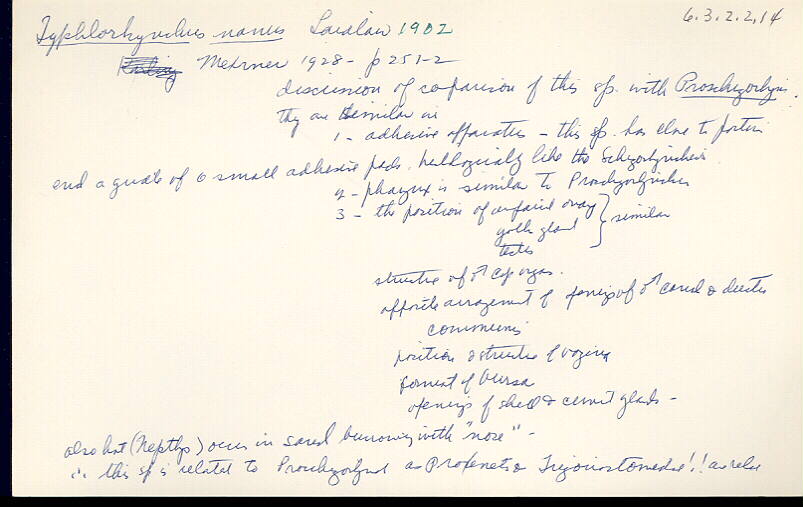 6.3.2.2.14
Typhlorhynchus nanus Laidlaw 1902
Meixner 1928 - p 251-2
discussion of comparison of this sp. with Proschizorhynchus.
they are similar in
1 - adhesive apparatus - this sp. has close to posterior
end a girdle of 6 small adhesive pads, histologically like the Schizorhynchus
2 - pharynx is similar to Proschizorhynchus
3 - the position of unpaired ovary
yolk gland } similar
testes
structure of ♂ cop organ.
opposite arrangement of openings of ♂ canal & ductus
communis
position & structure of vagina
format of bursa
openings of shell & cement glands -
also host (Nepthys) occurs in sand burrowing with "nose" -
∴ this sp is related to as &